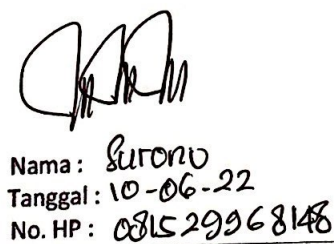 Nama : Surono
Tanggal : 10-06-22
No. HP : 081529968148